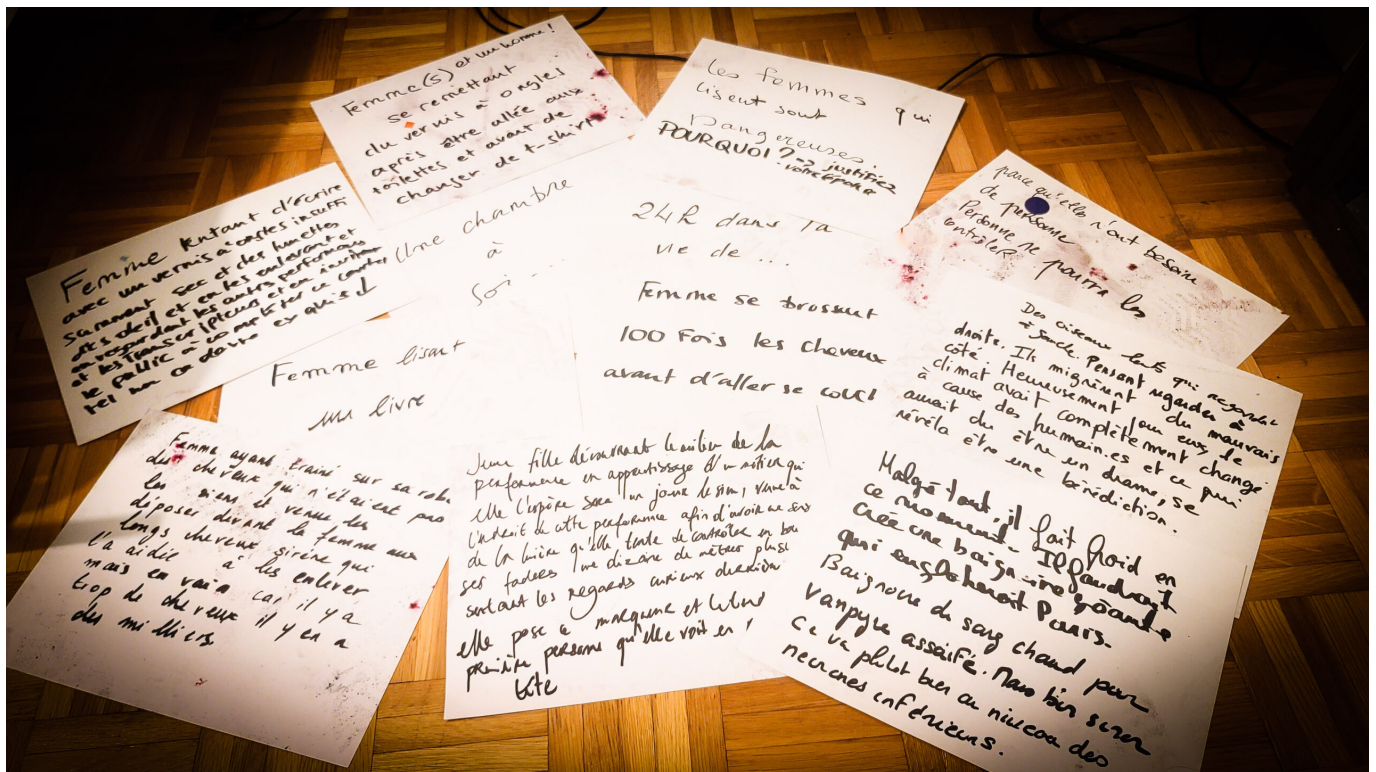 Femme(s) et un homme!
se remettant
du vernis à ongles
après être allée aux
toilettes et avant de
changer de t-shirt
les femmes qui
lisent sont
Dangereuses.
POURQUOI ?=> justifiez
votre réponse
parce qu'elles n'ont besoin
de personne
Personne ne pourra les
contrôler
Femme tentant d'écrire
avec un vernis à ongles insuffi
samment sec et des lunettes
de soleil et en les enlevant et
en regardant les autres performeuses
et les transcriptions et en invitant
le public à compléter ce
tel un cadavre exquis ↓
Une chambre
à
Soi...
24h dans la
vie de ...
Femme se brossant
100 Fois les cheveux
avant d'aller se couch
Femme lisant
un livre
Des oiseaux lents qui regardent
à gauche. Pensant regarder à
droite. Ils migrèrent du mauvais
côté. Heureusement pour eux le
climat avait complètement changé
à cause des humain.es et ce qui
aurait du être un drame, se
révéla être une bénédiction.
Femme ayant trainé sur sa robe
des cheveux qui n'étaient pas
les siens et venue les
déposer devant la femme aux
longs cheveux sirène qui
l'a aidée à les enlever
mais en vain car il y a
trop de cheveux il y en a
des milliers.
Jeune fille démarrant le milieu de la
performance en apprentissage d'un métier qui
elle l'espère sera un jour le sien, venue à
l'endroit de cette performance afin d'avoir un
de la lumière qu'elle tente de contrôler en
ses faders une dizaine de mètres plus
sentant les regards curieux derrière
elle pose a
première personne qu'elle voit en
tête
Malgré tout, il fait froid en
ce moment. Il faudrait
créer une baignoire géante
qui engloberait Paris.
Baignoire de sang chaud pour
vampyre assoiffé. Mais bien sûr
Ça va plutôt bien au niveau des
neurones inférieurs.